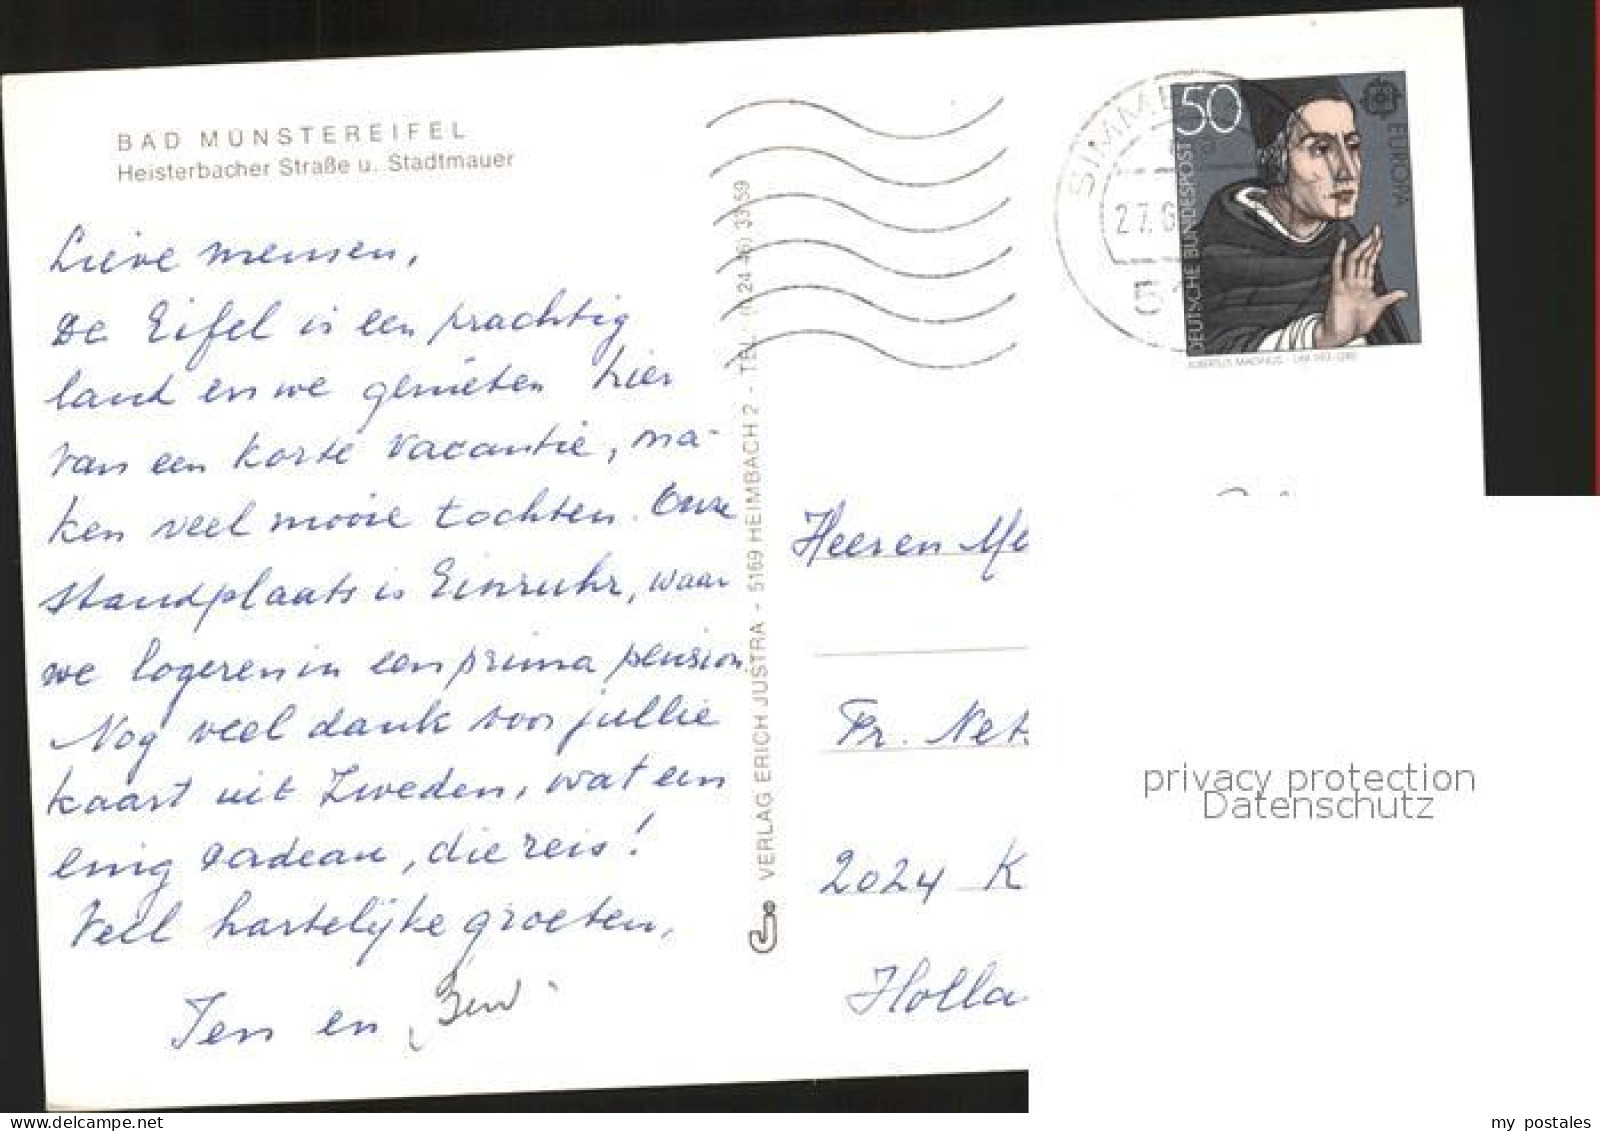 BAD MÜNSTEREIFEL
Heisterbacher Straße u. Stadtmauer
Lieve mensen,
De Eifel is een prachtig
land en we genieten hier
van een korte vacantie, ma-
ken veel mooie tochten. Onze
standplaats is Einruhr, waar
we logeren in een prima pension
Nog veel dank voor jullie
kaart uit Zweden, wat een
enig cadeau, die reis!
Veel hartelijke groeten,
Jen en
VERLAG ERICH JUSTRA - 5169 HEIMBACH 2 - TEL. (0 24 46) 33 59
SIMME
27.6
50
DEUTSCHE BUNDESPOST
EUROPA
ALBERTUS MAGNUS · UM 1193-1280
Heer en Me
Fr. Net
2024 K
Holla
privacy protection
Datenschutz
www.delcampe.net
my_postales